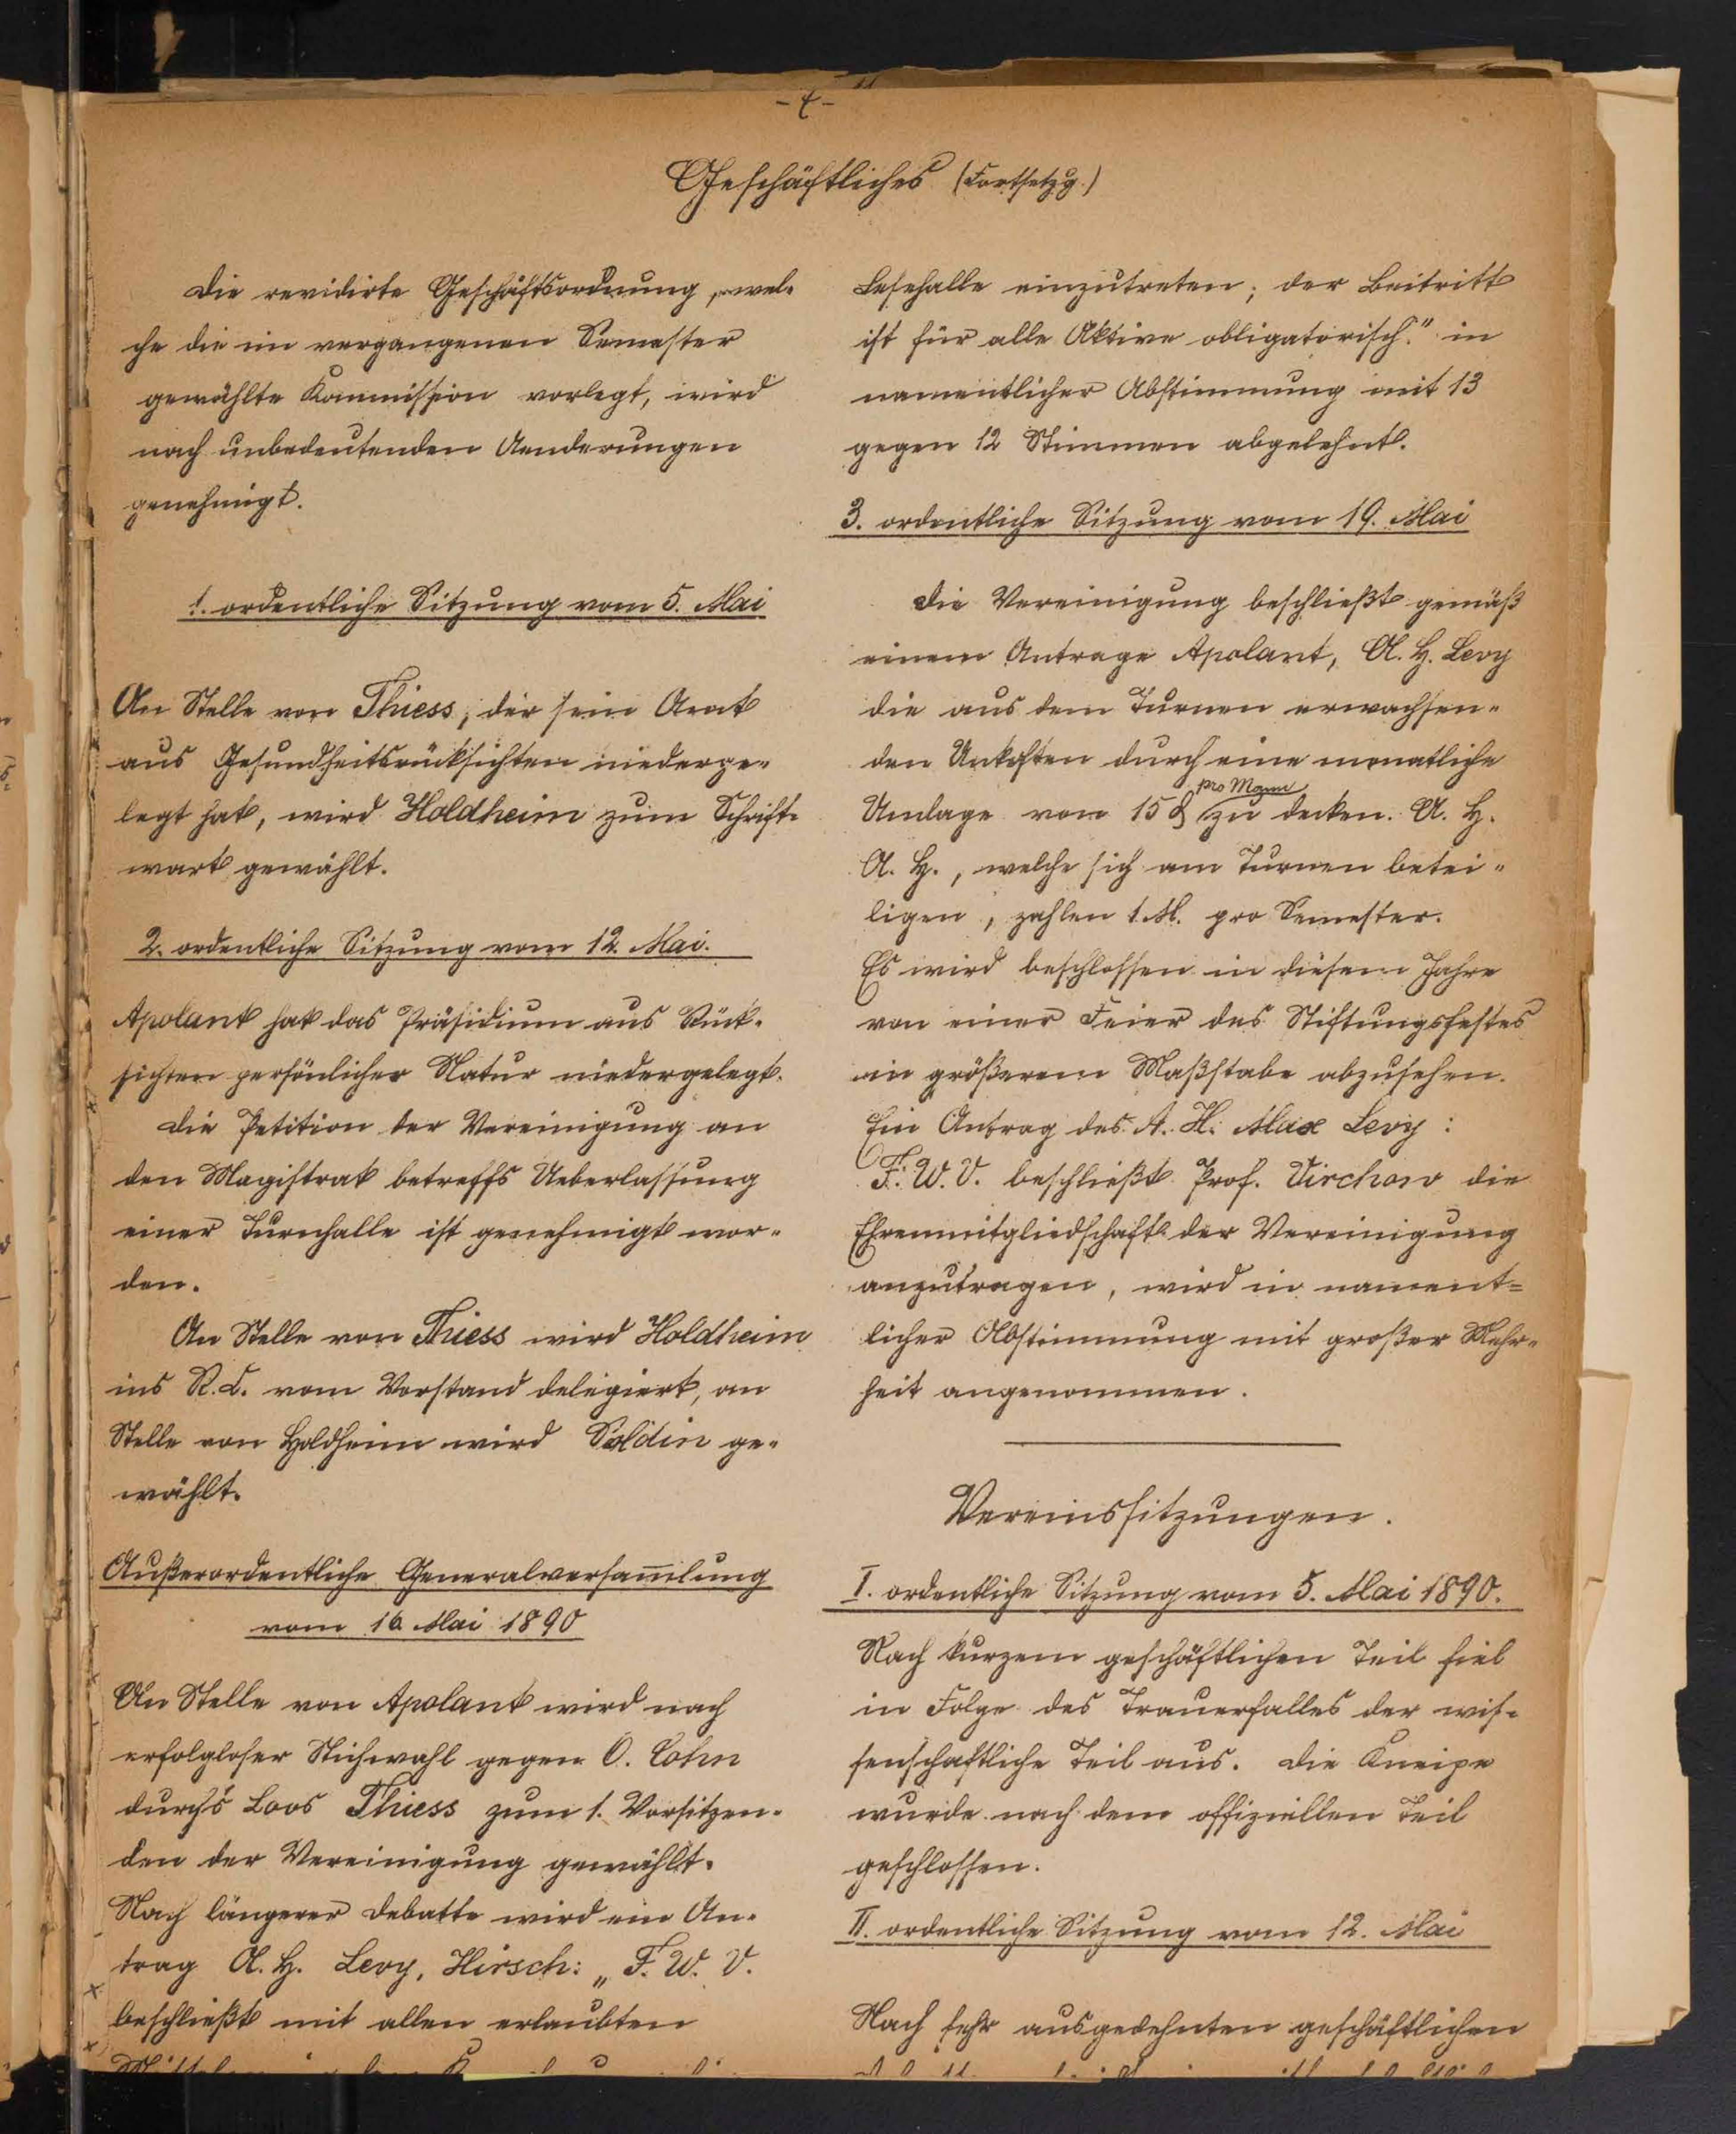 Geschäftliches (Fortsetzg.)
Die revidirte Geschäftsordnung, wel-
che die im vergangenen Semester
gewählte Kommission vorlegt, wird
nach unbedeutenden Aenderungen
genehmigt.
1. ordentliche Sitzung vom 5. Mai
An Stelle von Thiess, der sein Amt
aus Gesundheitsrücksichten niederge-
legt hat, wird Holdheim zum Schrift-
wart gewählt.
2. ordentliche Sitzung vom 12. Mai.
Apolant hat das Präsidium aus Rück-
sichten persönlicher Natur niedergelegt.
Die Petition der Vereinigung an
den Magistrat betreffs Ueberlassung
einer Turnhalle ist genehmigt wor-
den.
An Stelle von Thiess wird Holdheim
ins R. C. vom Vorstand delegiert, an
Stelle von Holdheim wird Soldin ge-
wählt.
Außerordentliche Generalversam̅lung
vom 16 Mai 1890
An Stelle von Apolant wird nach
erfolgloser Stichwahl gegen O. Cohn
durch's Loos Thiess zum 1. Vorsitzen-
den der Vereinigung gewählt.
Nach längerer Debatte wird ein An-
trag A. H. Levy, Hirsch: „F. W. V.
beschließt mit allen erlaubten
Lesehalle einzutreten; der Beitritt
ist für alle Aktive obligatorisch." in
namentlicher Abstimmung mit 13
gegen 12 Stimmen abgelehnt.
3. ordentliche Sitzung vom 19. Mai
Die Vereinigung beschließt gemäß
einem Antrage Apolant, A. H. Levy
die aus dem Turnen erwachsen-
den Unkosten durch eine monatliche
pro Mann
Umlage von 15 ₰ zu decken. A. H.
A. H., welche sich am Turnen betei-
ligen, zahlen 1 M. pro Semester.
Es wird beschlossen in diesem Jahre
von einer Feier des Stiftungsfestes
in größerem Maßstabe abzusehen.
Ein Antrag des A. H. Max Levy:
F. W. V. beschließt Prof. Virchow die
Ehrenmitgliedschaft der Vereinigung
anzutragen, wird in nament-
licher Abstimmung mit großer Mehr-
heit angenommen.
Vereinssitzungen.
I. ordentliche Sitzung vom 5. Mai 1890.
Nach kurzem geschäftlichen Teil fiel
in Folge des Trauerfalles der wis-
senschaftliche Teil aus. Die Kneipe
wurde nach dem offiziellen Teil
geschlossen.
II. ordentliche Sitzung vom 12. Mai
Nach sehr ausgedehnten geschäftlichen